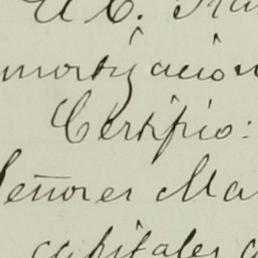 El C. Fran
mortizacion
Certifico:
Señores Ma
capitales